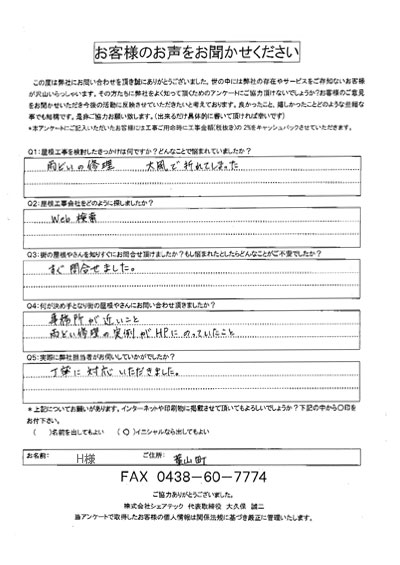 お客様のお声をお聞かせください
この度は弊社にお問い合わせを頂き誠にありがとうございました。世の中には弊社の存在やサービスをご存知ないお客様
が沢山いらっしゃいます。その方たちに弊社をよく知ってもらうためのアンケートにご協力頂けないでしょうか?お客様のご意見
をお聞かせいただき今後の活動に反映させていただきたいと考えております。良かったこと、嬉しかったことどのような些細な
事でも結構です。是非ご協力お願い致します。(出来るだけ具体的に書いて頂ければ幸いです)
*本アンケートにご記入いただいたお客様には工事ご用命時に工事金額(税抜き)の2%をキャッシュバックさせていただきます。
Q1:屋根工事を検討したきっかけは何ですか?どんなことで悩まれていましたか?
雨どいの修理 大風で折れてしまった
Q2:屋根工事会社をどのように探しましたか?
Web 検索
Q3:街の屋根やさんを知りすぐにお問合せ頂けましたか?もし悩まれたとしたらどんなことがご不安でしたか?
すぐ問合せました。
Q4:何が決め手となり街の屋根やさんにお問い合わせ頂きましたか?
事務所が近いこと
雨どい修理の実例がHPにのっていたこと
Q5:実際に弊社担当者がお伺いしていかがでしたか?
丁寧に対応いただきました。
*上記についてお願いがあります。インターネットや印刷物に掲載させて頂いてもよろしいでしょうか?下記の中から〇印を
お付下さい。
( )名前を出してもよい (〇)イニシャルなら出してもよい
お名前: H様 ご住所: 葉山町
FAX 0438-60-7774
ご協力ありがとうございました。
株式会社シェアテック 代表取締役 大久保 誠二
当アンケートで取得したお客様の個人情報は関係法規に基づき厳正に管理いたします。